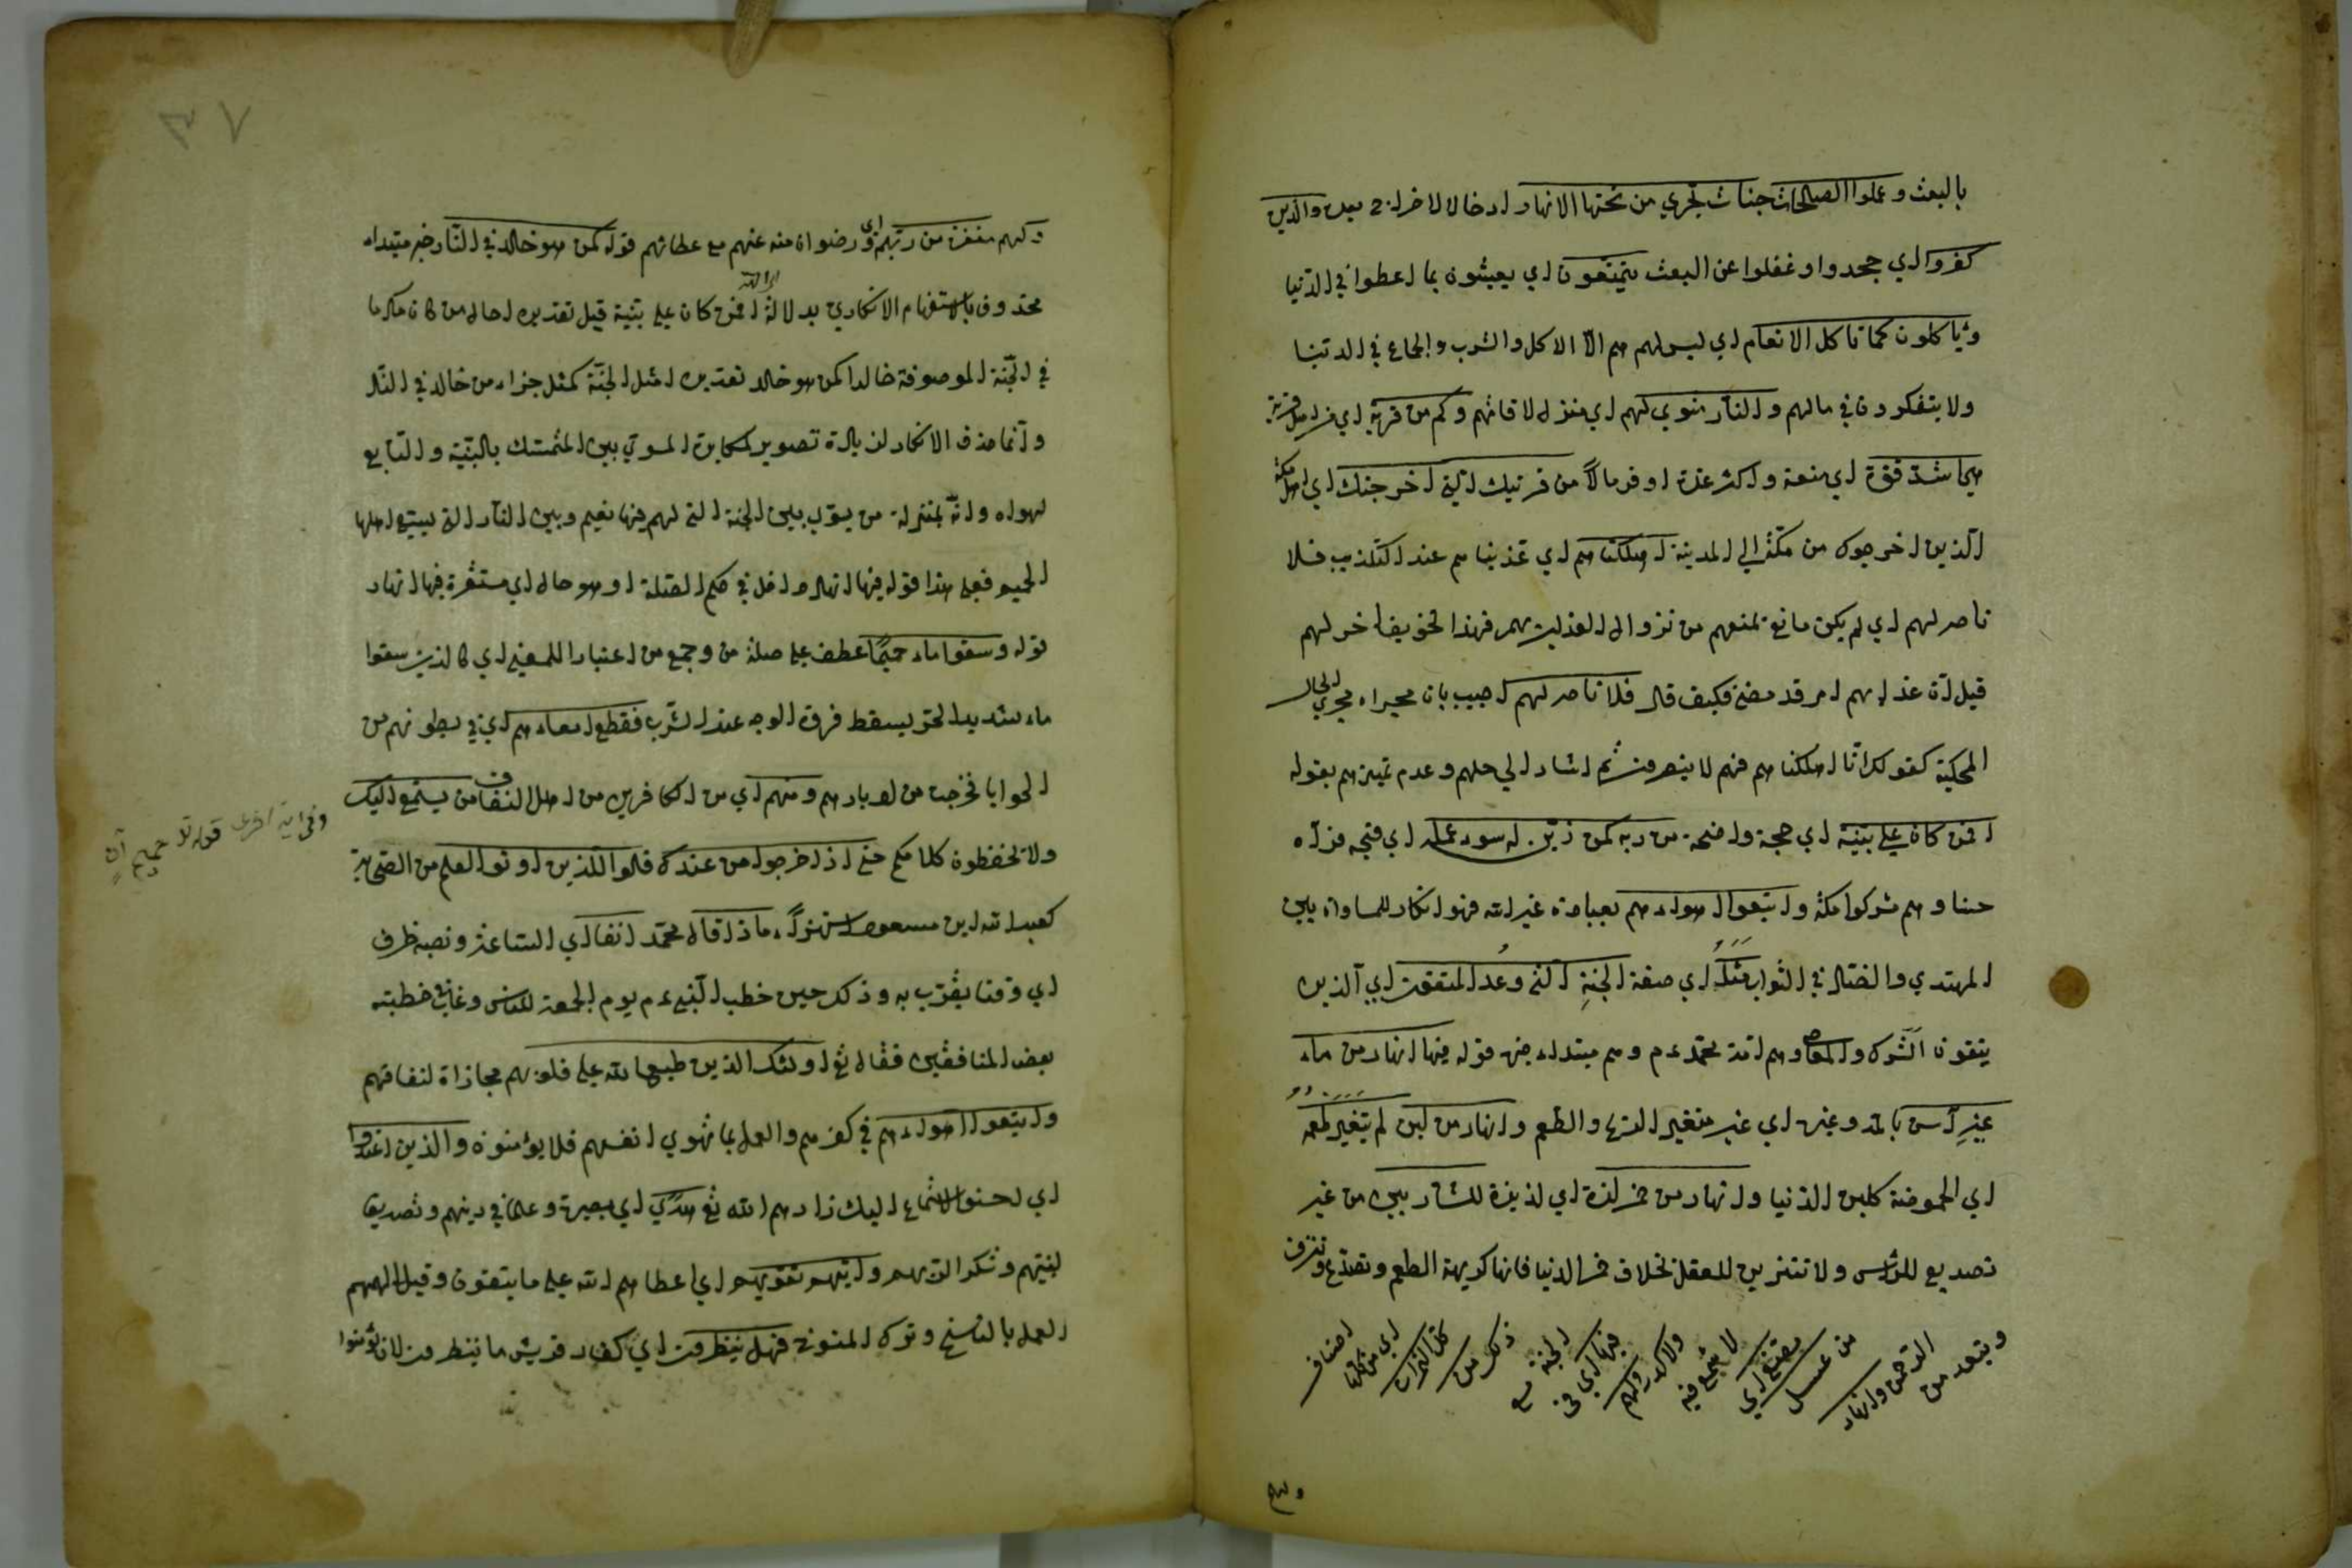 بالبعث وعملوا الصالحات جنات تجري من تحتها الانهار ادخالا لاخراج بعده والذين
كفروا اي جحدوا وغفلوا عن البعث يتمتعون اي يعيشون بما اعطوا في الدنيا
وياكلون كما تاكل الانعام اي ليس لهم هم الا الاكل والشرب والجماع في الدنيا
ولا يتفكرون في مالهم والنار مثوي لهم اي منزل لاقامتهم وكم من قرية اي من اهل قرية
هي اشد قوة اي منعة واكثر عدة اوفر مالا من قريتك التي اخرجتك اي اهل مكة
الذين اخرجوك من مكة الي المدينة اهلكناهم اي عذبناهم عند التكذيب فلا
ناصر لهم اي لم يكن مانع يمنعهم من نزول العذاب بهم فهذا تخويف اخر لهم
قيل ان عذابهم امر قد مضي فكيف قال فلا ناصر لهم اجيب بان مجراه مجري الحال
المحكية كقولك انا اهلكناهم فهم لا ينصرون ثم اشار الي جهلهم وعدم تميزهم بقوله
افمن كان علي بينة اي حجة واضحة من ربه كمن زين له سوء عمله اي قبيحه فرآه
حسنا وهم مشركوا مكة واتبعوا اهواءهم بعبادة غير الله فهو انكار للمساواة بين
المهتدي والضال في الثواب مثل اي صفة الجنة التي وعد المتقون اي الذين
يتقون الشرك والمعاصي وهم امة محمد عم وهم مبتداء خبره قوله فيها انهار من ماء
غير آسن بالمد وغيره اي غير متغير الريح والطعم وانهار من لبن لم يتغير طعمه
اي الحموضة كلبن الدنيا وانهار من خمر لذة اي لذيذة للشاربين من غير
تصديع للرأس ولا تنزيف للعقل بخلاف خمر الدنيا فانها كريهة الطعم وتصدع وتنزف
من عسل
مصفي اي
لا شمع فيه
ولا كدر ولهم
فيها اي في
الجنة مع
ذكر من
كل الثمرات
اي من كلها
اصناف
ولهم
ولهم مغفرة من ربهم اي ورضوان منه عنهم مع عطائهم قوله كمن هو خالد في النار خبر مبتداء
محذوف بالاستفهام الانكاري بدلالة افمن كان علي بينة قيل تقديره احال من كان مكرما
في الجنة الموصوفة خالدا كمن هو خالد تقديره امثل الجنة كمثل جزاء من خالد في النار
وانما حذف الانكار لزيادة تصوير لمكابرة المسوي بين المتمسك بالبينة والتابع
لهواه وانه بمنزلة من يسوي بين الجنة التي لهم فيها نعيم وبين النار التي يسقي اهلها
الحميم فعلي هذا قوله فيها انهار داخل في حكم الصلة او هو حال اي مستقرة فيها انهار
قوله وسقوا ماء حميما عطف علي صلة من وجمع من اعتبارا للمعني اي كالذين سقوا
ماء شديد الحر يسقط فروة الوجه عند الشرب فقطع امعاءهم اي في بطونهم من
الحوايا فخرجت من ادبارهم ومنهم اي من الكافرين من اهل النفاق من يستمع اليك
وفي آية اخري قوله تع حميم آن
ولا يحفظون كلامكم حتي اذا خرجوا من عندك قالوا للذين اوتوا العلم من الصحابة
كعبد الله ابن مسعود استهزاء ماذا قال محمد انفا اي الساعة ونصبه ظرف
اي وقتا يقرب به وذلك حين خطب النبي عم يوم الجمعة للناس وعاب في خطبته
بعض المنافقين فقال تع اولئك الذين طبع الله علي قلوبهم مجازاة لنفاقهم
واتبعوا اهواءهم في كفرهم والعمل بما تهوي انفسهم فلا يؤمنون والذين اهتدوا
اي احسنوا الاستماع اليك زادهم الله تع هدي اي بصيرة وعلما في دينهم وتصديقا
لنبيهم وشكرا لربهم واتيهم تقويهم اي اعطاهم الله علي ما يتقون وقيل الهمهم
العمل بالناسخ وترك المنسوخ فهل ينظرون اي كفار قريش ما ينتظرون لان يؤمنوا